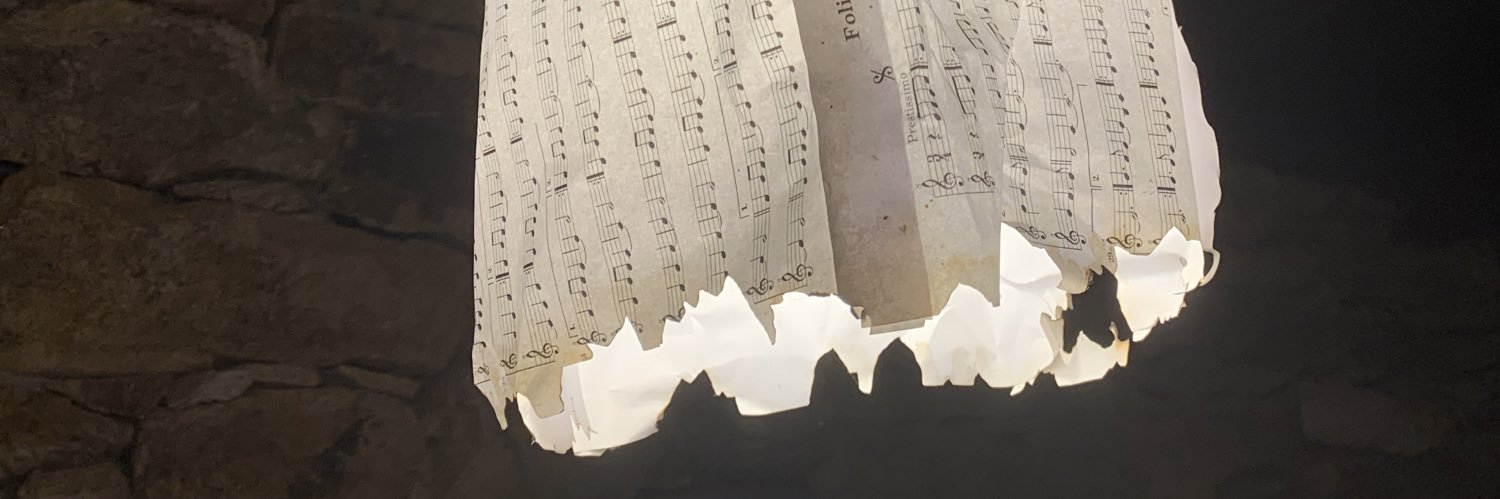 Foli
Prestissimo
1.
2.
1.
2.